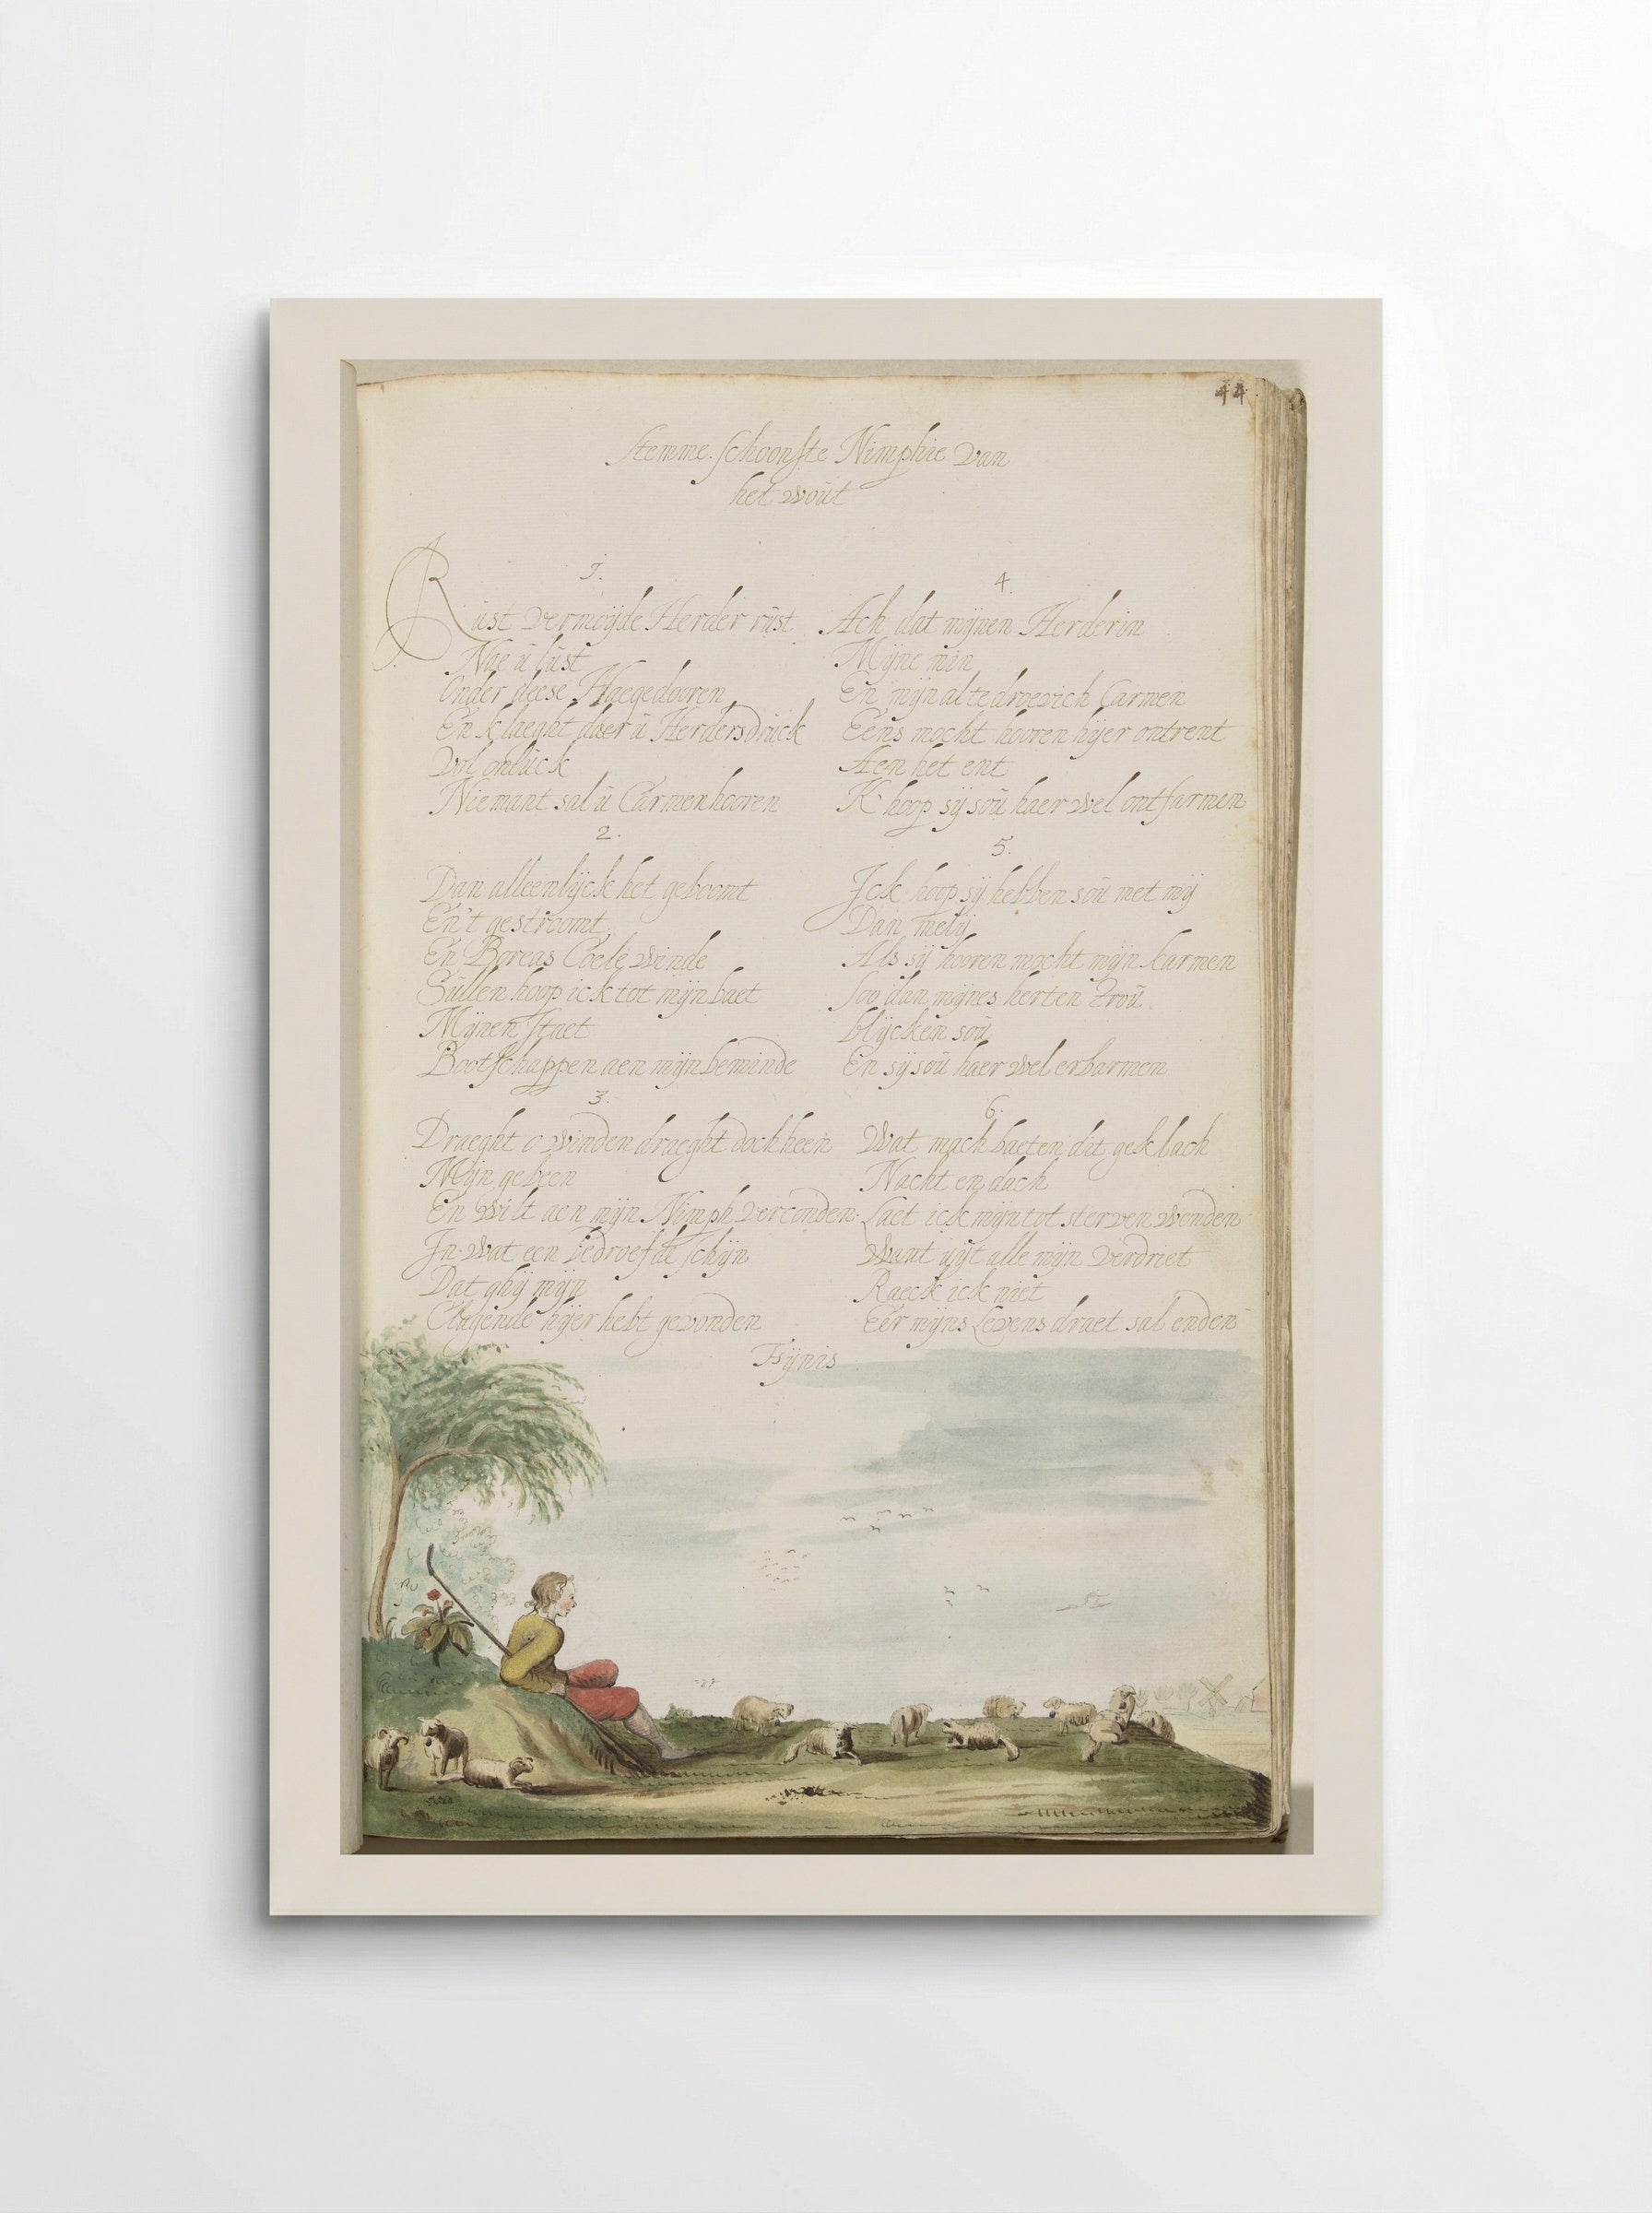 44
Stemme. Schoonste Nimphie van
het wout
1.
Rust vermoijde Herder rust
Nae u lust
Onder deese Haegedooren
En klaeght daer u Herdersdruck
Vol onluck
Niemant sal u Carmen hooren
2.
Dan alleenlijck het geboomt
En't gestroomt
En Boreas Coele winde
Sullen hoop ick tot mijn baet
Mijnen staet
Bootschappen aen mijn beminde
3.
Draeght o winden draeght doch heen
Mijn gebeen
En wilt aen mijn Nimph verconden
In wat een bedroefde schijn
Dat ghij mijn
hijer hebt gevonden
4.
Ach dat mijnen Herderin
Mijne min
En mijn al te droevich Carmen
Eens mocht hooren hijer ontrent
Aen het ent
K hoop sij sou haer wel ontfarmen
5.
Ick hoop sij hebben sou met mij
Dan melij
Als sij hooren mocht mijn karmen
Soo dan mijnes herten trou
blijcken sou
En sij sou haer wel erbarmen
6.
Wat mach baeten dit geklach
Nacht en dach
Laet ick mijn tot sterven wenden
Want uijt alle mijn verdriet
Raeck ick niet
Eer mijns Levens draet sal enden
Fijnis